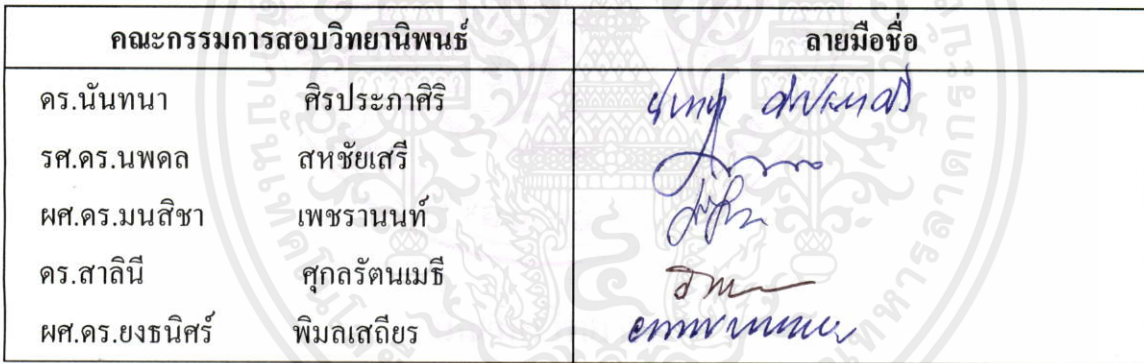 คณะกรรมการสอบวิทยานิพนธ์ ลายมือชื่อ
ดร.นันทนา ศิรประภาศิริ
รศ.ดร.นพดล สหชัยเสรี
ผศ.ดร.มนสิชา เพชรานนท์
ดร.สาลินี ศุกลรัตนเมธี
ผศ.ดร.ยงธนิศร์ พิมลเสถียร